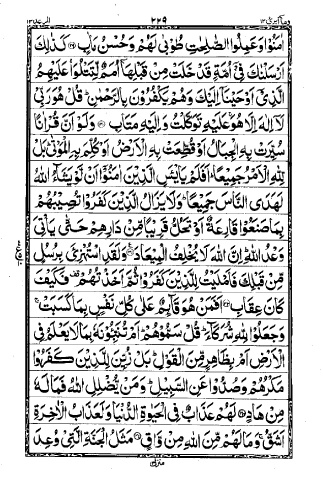 وما ابرئ ١٣ ٢٢٩ الرعد ١٣
اٰمَنُوْا وَعَمِلُوا الصّٰلِحٰتِ طُوْبٰى لَهُمْ وَحُسْنُ مَاٰبٍ ۝ كَذٰلِكَ
اَرْسَلْنٰكَ فِيْٓ اُمَّةٍ قَدْ خَلَتْ مِنْ قَبْلِهَآ اُمَمٌ لِّتَتْلُوَا۟ عَلَيْهِمُ
الَّذِيْٓ اَوْحَيْنَآ اِلَيْكَ وَهُمْ يَكْفُرُوْنَ بِالرَّحْمٰنِ ؕ قُلْ هُوَ رَبِّيْ
لَآ اِلٰهَ اِلَّا هُوَ ۚ عَلَيْهِ تَوَكَّلْتُ وَاِلَيْهِ مَتَابِ ۝ وَلَوْ اَنَّ قُرْاٰنًا
سُيِّرَتْ بِهِ الْجِبَالُ اَوْ قُطِّعَتْ بِهِ الْاَرْضُ اَوْ كُلِّمَ بِهِ الْمَوْتٰى ؕ بَلْ
لِّلّٰهِ الْاَمْرُ جَمِيْعًا ؕ اَفَلَمْ يَايْـَٔسِ الَّذِيْنَ اٰمَنُوْٓا اَنْ لَّوْ يَشَآءُ اللّٰهُ
لَهَدَى النَّاسَ جَمِيْعًا ؕ وَلَا يَزَالُ الَّذِيْنَ كَفَرُوْا تُصِيْبُهُمْ
بِمَا صَنَعُوْا قَارِعَةٌ اَوْ تَحُلُّ قَرِيْبًا مِّنْ دَارِهِمْ حَتّٰى يَاْتِيَ
وَعْدُ اللّٰهِ ؕ اِنَّ اللّٰهَ لَا يُخْلِفُ الْمِيْعَادَ ۝ وَلَقَدِ اسْتُهْزِئَ بِرُسُلٍ
مِّنْ قَبْلِكَ فَاَمْلَيْتُ لِلَّذِيْنَ كَفَرُوْا ثُمَّ اَخَذْتُهُمْ ۫ فَكَيْفَ
كَانَ عِقَابِ ۝ اَفَمَنْ هُوَ قَآئِمٌ عَلٰى كُلِّ نَفْسٍۭ بِمَا كَسَبَتْ ۚ
وَجَعَلُوْا لِلّٰهِ شُرَكَآءَ ؕ قُلْ سَمُّوْهُمْ ؕ اَمْ تُنَبِّـُٔوْنَهٗ بِمَا لَا يَعْلَمُ فِي
الْاَرْضِ اَمْ بِظَاهِرٍ مِّنَ الْقَوْلِ ؕ بَلْ زُيِّنَ لِلَّذِيْنَ كَفَرُوْا
مَكْرُهُمْ وَصُدُّوْا عَنِ السَّبِيْلِ ؕ وَمَنْ يُّضْلِلِ اللّٰهُ فَمَا لَهٗ
مِنْ هَادٍ ۝ لَهُمْ عَذَابٌ فِي الْحَيٰوةِ الدُّنْيَا وَلَعَذَابُ الْاٰخِرَةِ
اَشَقُّ ۚ وَمَا لَهُمْ مِّنَ اللّٰهِ مِنْ وَّاقٍ ۝ مَثَلُ الْجَنَّةِ الَّتِيْ وُعِدَ